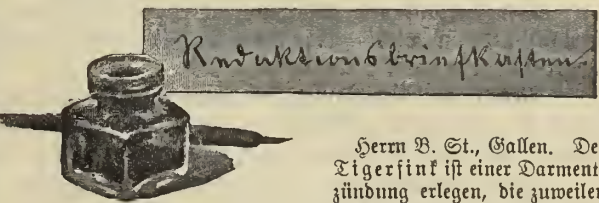 Redaktionsbriefkasten
Herrn B. St., Gallen. De
Tigerfink ist einer Darment
zündung erlegen, die zuweilen